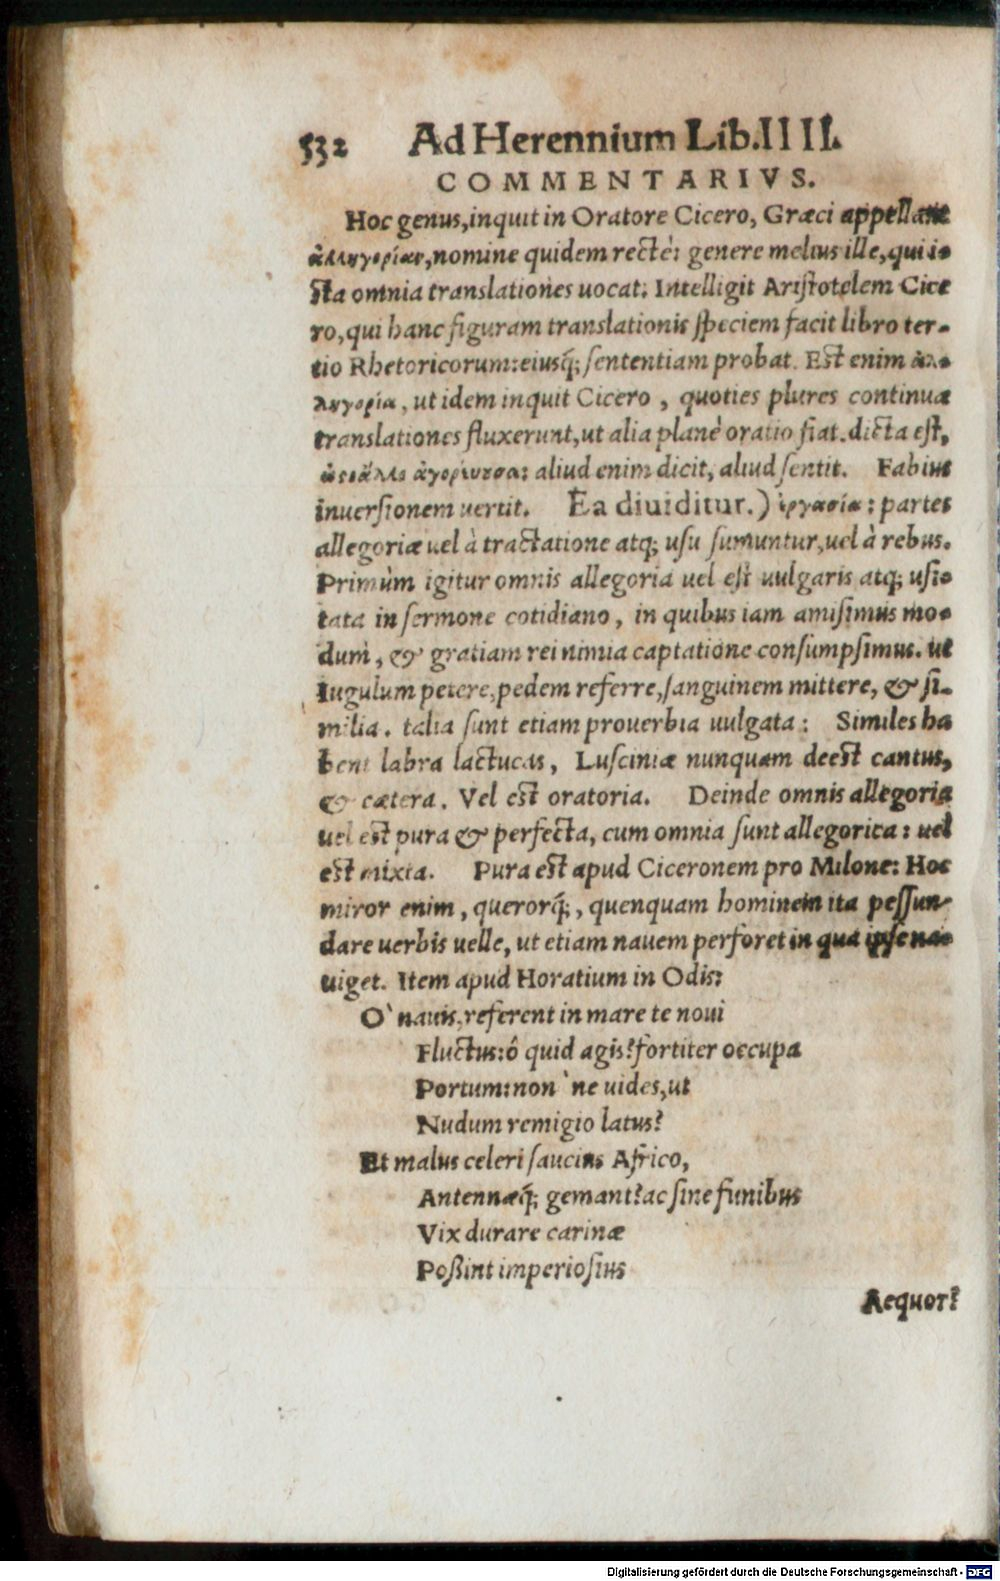 532 Ad Herennium Lib. IIII.
COMMENTARIVS.
Hoc genus, inquit in Oratore Cicero, Græci appellant
ἀλληγορίαν, nomine quidem rectè: genere melius ille, qui i-
sta omnia translationes uocat: Intelligit Aristotelem Cice
ro, qui hanc figuram translationis speciem facit libro ter-
tio Rhetoricorum: eiusq́; sententiam probat. Est enim ἀλ-
ληγορία, ut idem inquit Cicero, quoties plures continuæ
translationes fluxerunt, ut alia planè oratio fiat. dicta est,
ἀγορεύουσα: aliud enim dicit, aliud sentit. Fabius
inuersionem uertit. Ea diuiditur.) ἐργασία: partes
allegoriæ uel à tractatione atq; usu sumuntur, uel à rebus.
Primùm igitur omnis allegoria uel est uulgaris atq; usi-
tata in sermone cotidiano, in quibus iam amisimus mo-
dum, & gratiam rei nimia captatione consumpsimus. ut
Iugulum petere, pedem referre, sanguinem mittere, & si-
milia. talia sunt etiam prouerbia uulgata: Similes ha
bent labra lactucas, Lusciniæ nunquam deest cantus,
& cætera. Vel est oratoria. Deinde omnis allegoria
uel est pura & perfecta, cum omnia sunt allegorica: uel
est mixta. Pura est apud Ciceronem pro Milone: Hoc
miror enim, querorq́;, quenquam hominem ita pessun-
dare uerbis uelle, ut etiam nauem perforet in qua ipse na-
uiget. Item apud Horatium in Odis:
O` nauis, referent in mare te noui
Fluctus: ô quid agis? fortiter occupa
Portum: non `ne uides, ut
Nudum remigio latus?
Et malus celeri saucius Africo,
Antennæq́; gemant? ac sine funibus
Vix durare carinæ
Poßint imperiosius
Aequor?
Digitalisierung gefördert durch die Deutsche Forschungsgemeinschaft - DFG